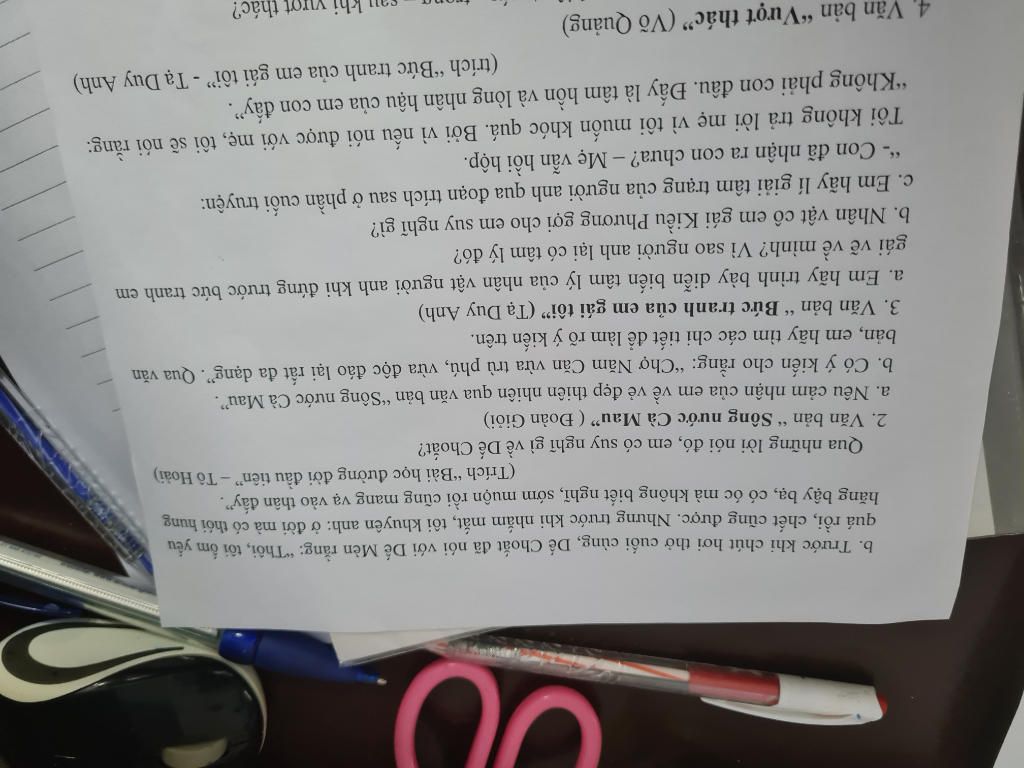 b. Trước khi chút hơi thở cuối cùng, Dế Choắt đã nói với Dế Mèn rằng: “Thôi, tôi ốm yếu
quá rồi, chết cũng được. Nhưng trước khi nhắm mắt, tôi khuyên anh: ở đời mà có thói hung
hăng bậy bạ, có óc mà không biết nghĩ, sớm muộn rồi cũng mang vạ vào thân đấy”.
(Trích “Bài học đường đời đầu tiên” – Tô Hoài)
Qua những lời nói đó, em có suy nghĩ gì về Dế Choắt?
2. Văn bản “ Sông nước Cà Mau” ( Đoàn Giỏi)
a. Nêu cảm nhận của em về vẻ đẹp thiên nhiên qua văn bản “Sông nước Cà Mau”.
b. Có ý kiến cho rằng: “Chợ Năm Căn vừa trù phú, vừa độc đáo lại rất đa dạng”. Qua văn
bản, em hãy tìm các chi tiết để làm rõ ý kiến trên.
3. Văn bản “ Bức tranh của em gái tôi” (Tạ Duy Anh)
a. Em hãy trình bày diễn biến tâm lý của nhân vật người anh khi đứng trước bức tranh em
gái vẽ về mình? Vì sao người anh lại có tâm lý đó?
b. Nhân vật cô em gái Kiều Phương gợi cho em suy nghĩ gì?
c. Em hãy lí giải tâm trạng của người anh qua đoạn trích sau ở phần cuối truyện:
“- Con đã nhận ra con chưa? – Mẹ vẫn hồi hộp.
Tôi không trả lời mẹ vì tôi muốn khóc quá. Bởi vì nếu nói được với mẹ, tôi sẽ nói rằng:
“Không phải con đâu. Đấy là tâm hồn và lòng nhân hậu của em con đấy”.
(trích “Bức tranh của em gái tôi” - Tạ Duy Anh)
4. Văn bản “Vượt thác” (Võ Quảng)
sau khi vượt thác?